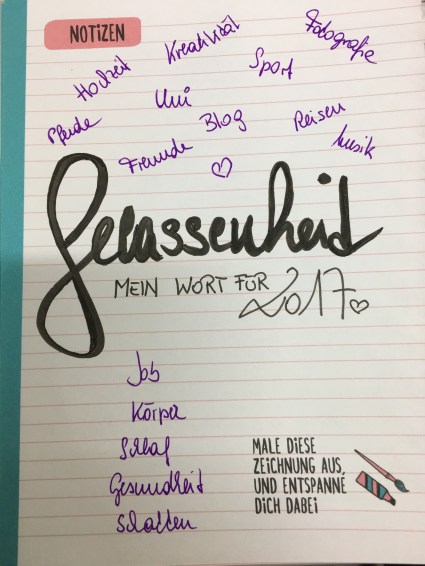 NOTIZEN
Kreativität
Fotografie
Hochzeit
Sport
Uni
Pferde
Blog
Reisen
Freunde
Musik
Gelassenheid
MEIN WORT FÜR 2017
Job
Körper
Schlaf
Gesundheit
Schatten
MALE DIESE
ZEICHNUNG AUS
UND ENTSPANNE
DICH DABEI